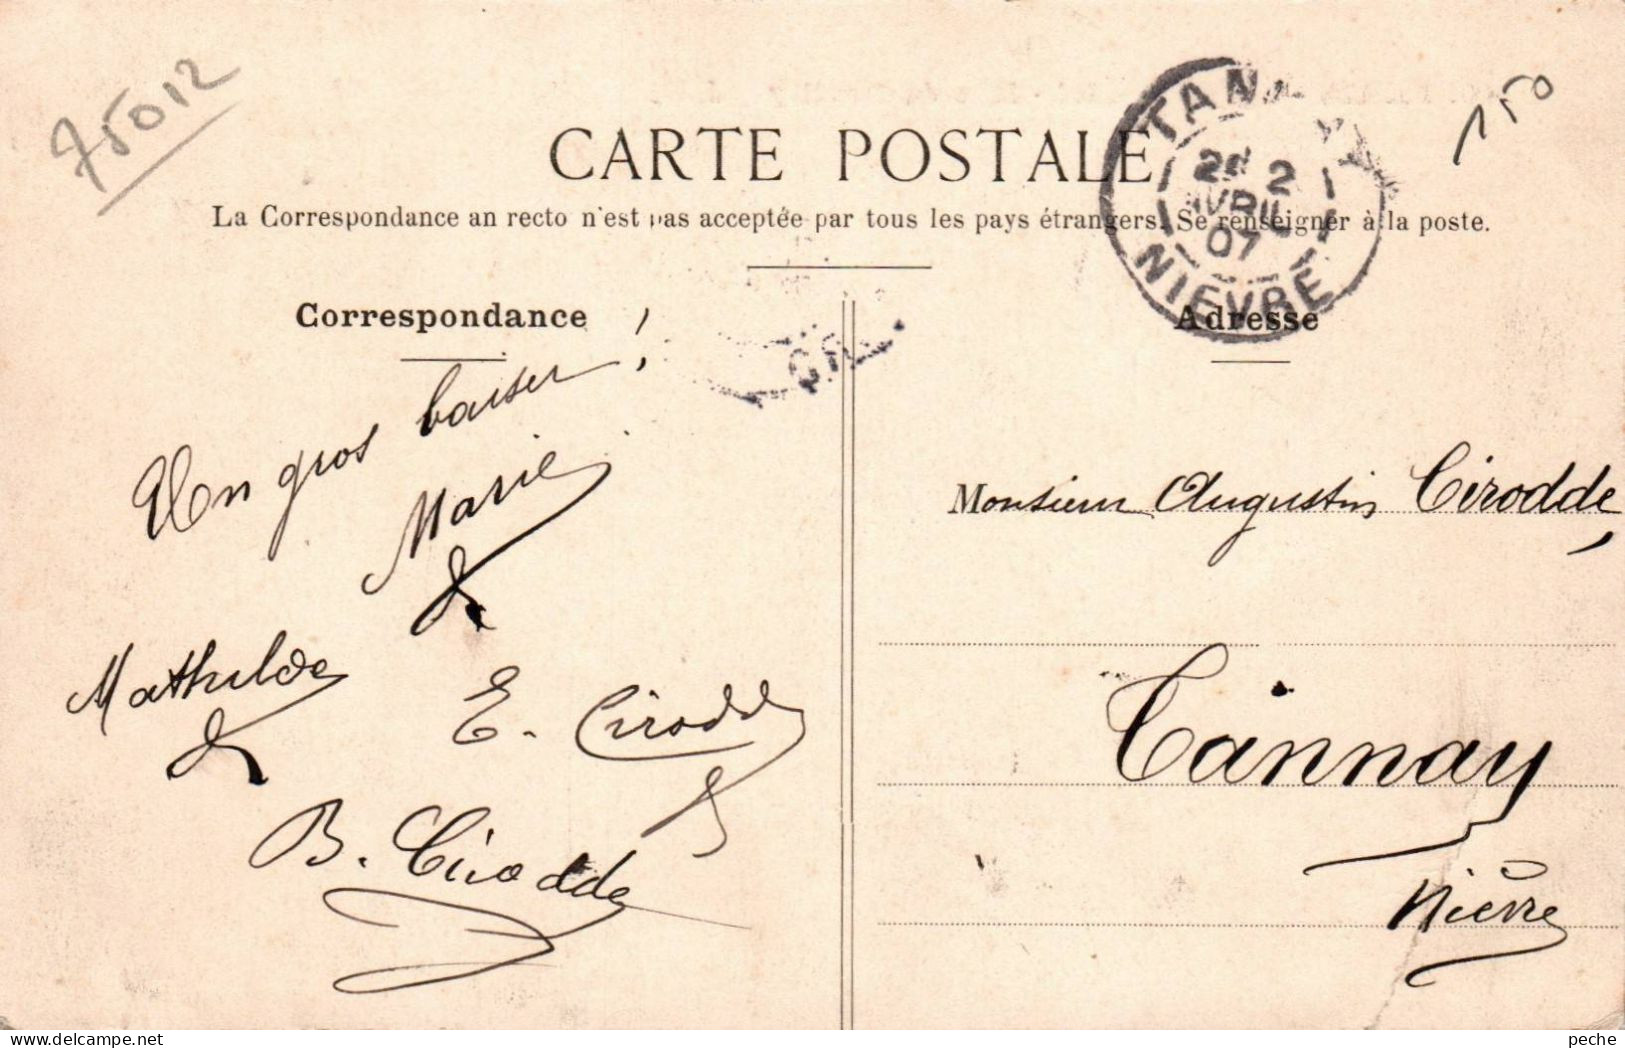 75012
150
CARTE POSTALE
La Correspondance au recto n'est pas acceptée par tous les pays étrangers. Se renseigner à la poste.
TANNAY
2
AVRIL
07
NIEVRE
Correspondance
Adresse
Un gros baiser !
Marie
Mathilde
E. Cirodde
B. Cirodde
Monsieur Augustin Cirodde,
Tannay
Nièvre
peche